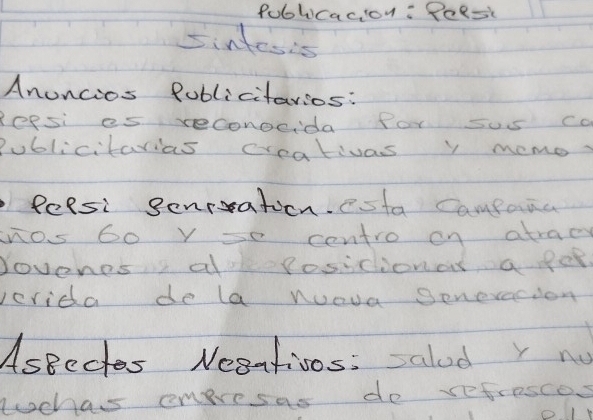 Publicacion: Pepsi
Sintesis
Anuncios Publicitarios:
Pepsi es reconocida por sus ca
Publicitarias creativas y memo
Pepsi generation. esta campaña
años 60 y se centro en atrac
Jovenes al Posicionar a Pep
verida de la nueva generacion
Aspectos Negativos: salud y nu
muchas empresas de refrescos